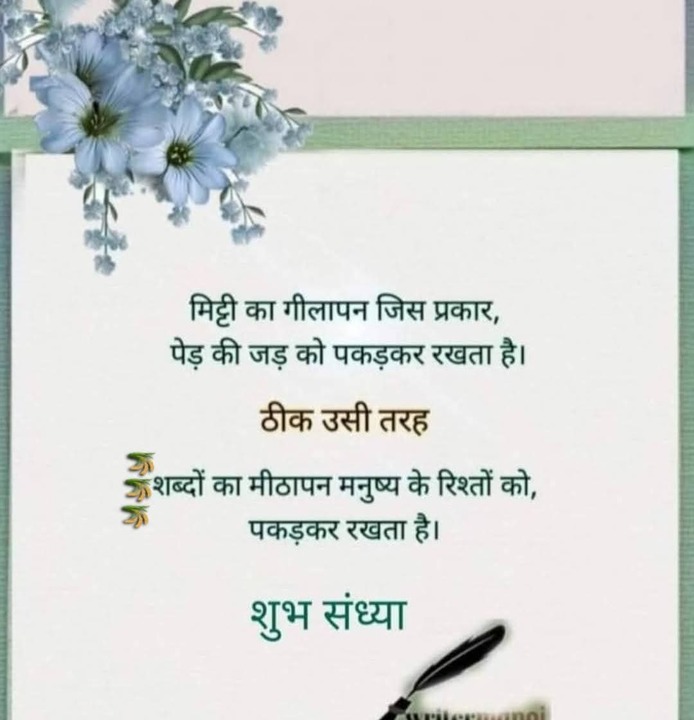 मिट्टी का गीलापन जिस प्रकार,
पेड़ की जड़ को पकड़कर रखता है।
ठीक उसी तरह
शब्दों का मीठापन मनुष्य के रिश्तों को,
पकड़कर रखता है।
शुभ संध्या